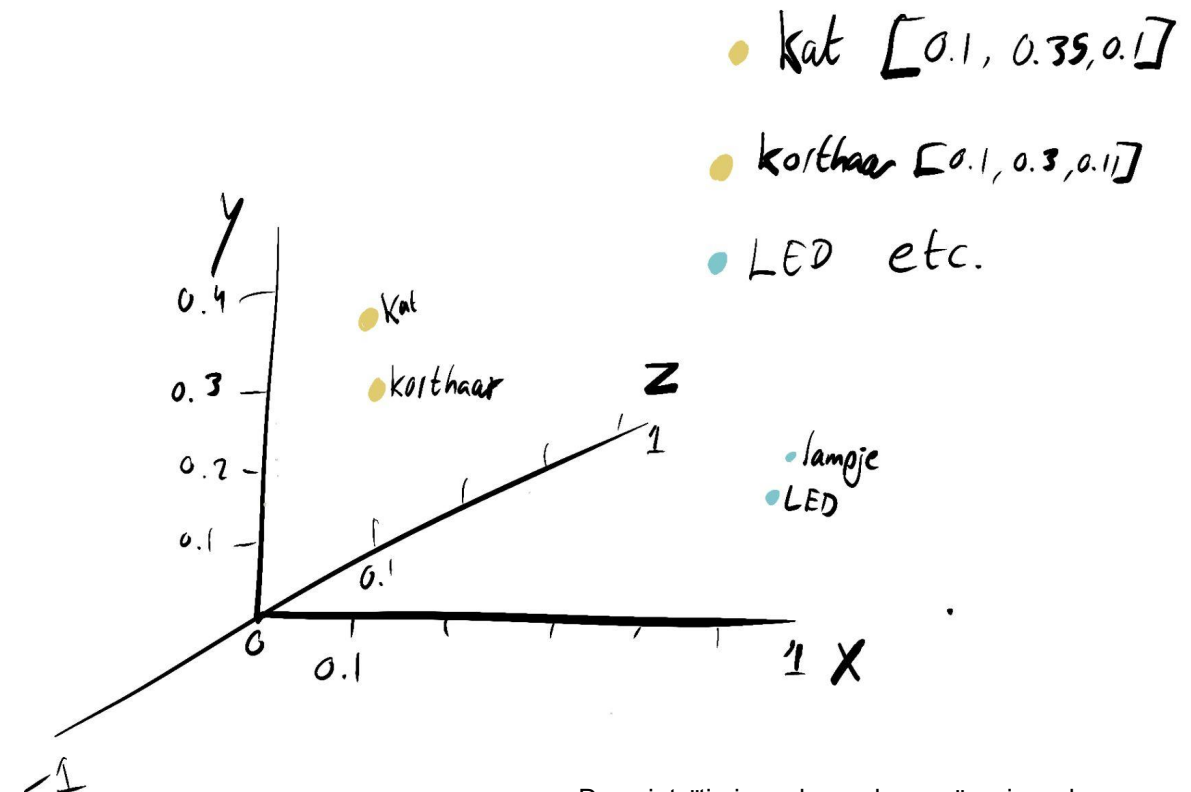 kat [0.1, 0.35, 0.1]
korthaar [0.1, 0.3, 0.11]
LED etc.
y
0.4
kat
0.3
korthaar
z
1
0.2
lampje
LED
0.1
0.1
0
0.1
1 X
-1